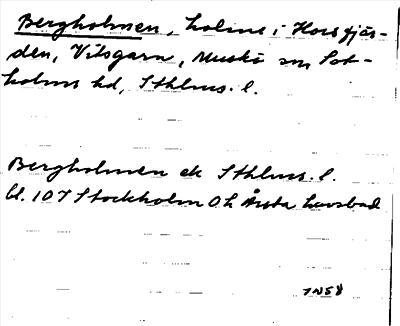 Bergholmen, holme i Horsfjär-
den, Vitsgarn, Muskö sn Sot-
holms hd, Sthlms. l.
Bergholmen ek Sthlms. l.
bl. 107 Stockholm OH Årsta havsbad
JNS8